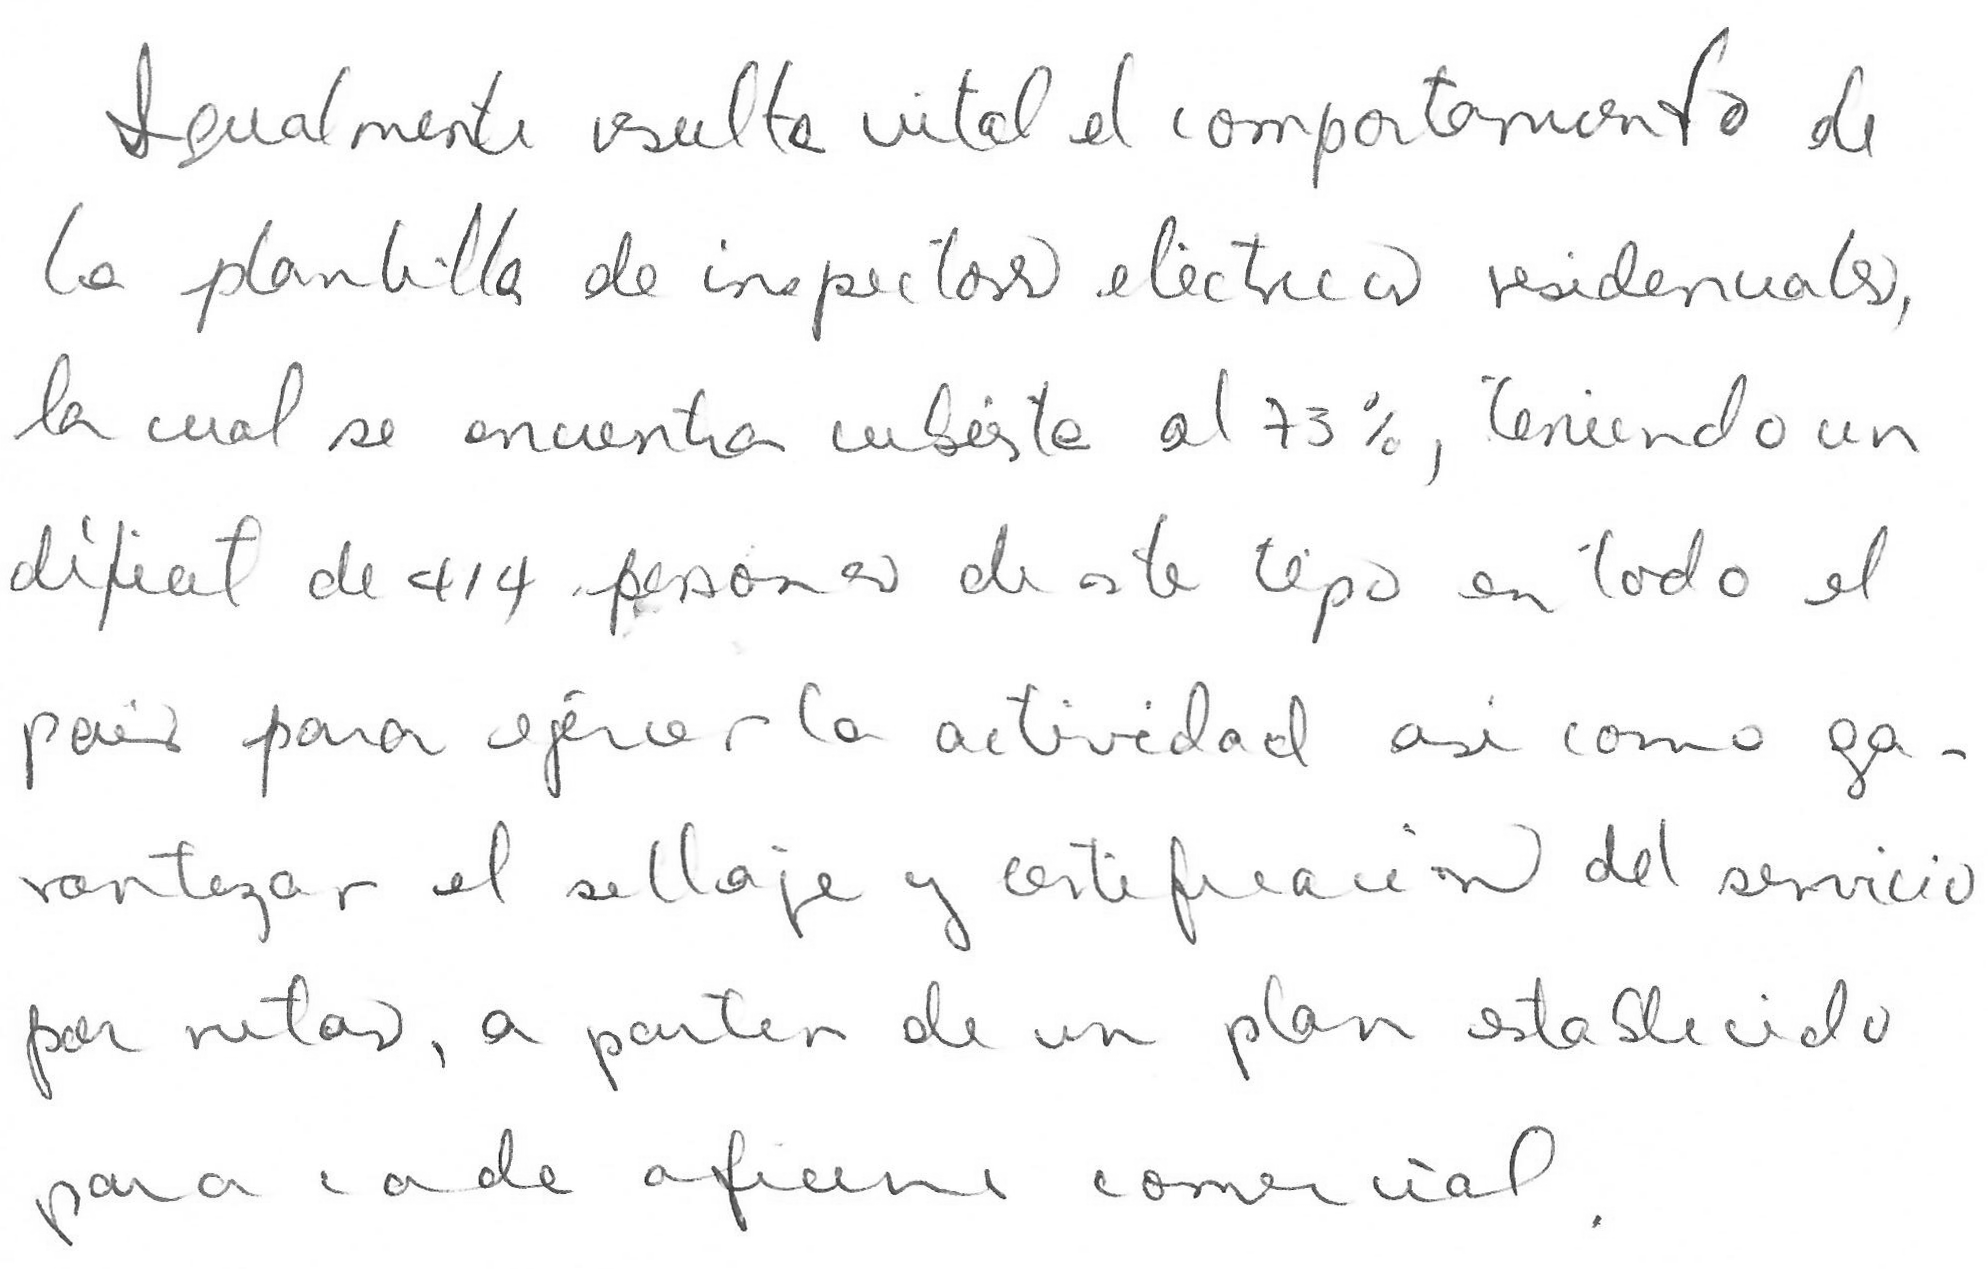 Igualmente resulta vital el comportamiento de
la plantilla de inspectores eléctricos residenciales,
la cual se encuentra cubierta al 73%, teniendo un
déficit de 414 personas de este tipo en todo el
país para ejercer la actividad así como ga-
rantizar el sellaje y certificación del servicio
por rutas, a partir de un plan establecido
para cada oficina comercial.